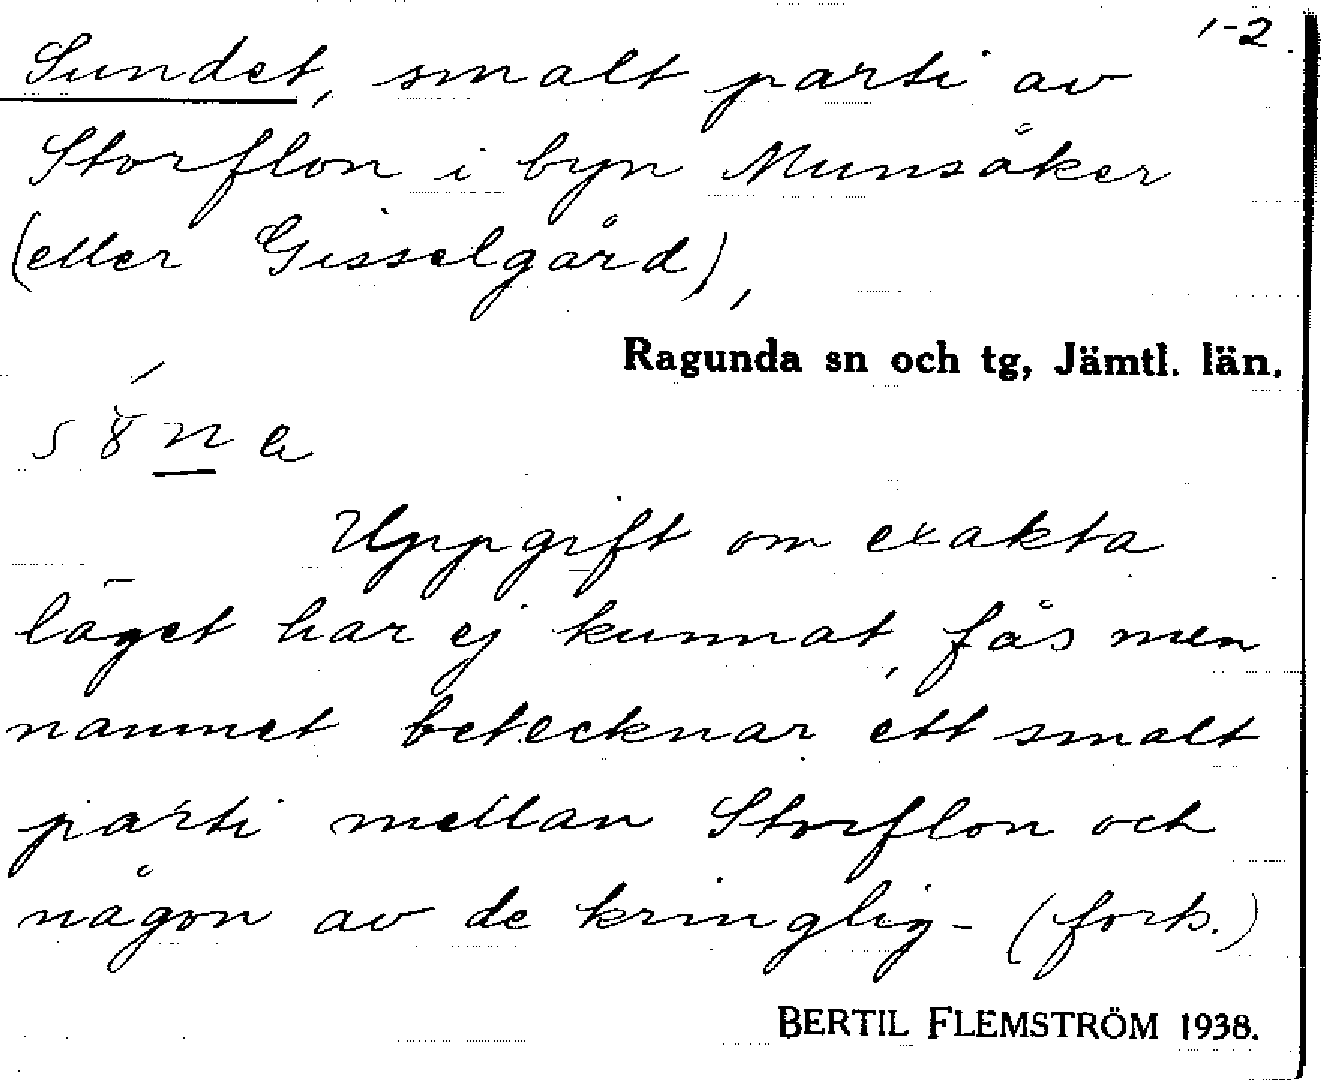 1-2.
Sundet, smalt parti av
Storflon i byn Munsåker
(eller Gisselgård),
Ragunda sn och tg, Jämtl. län.
Uppgift om exakta
läget har ej kunnat, fås men
namnet betecknar ett smalt
parti mellan Storflon och
någon av de kringlig- (forts.)
BERTIL FLEMSTRÖM 1938.